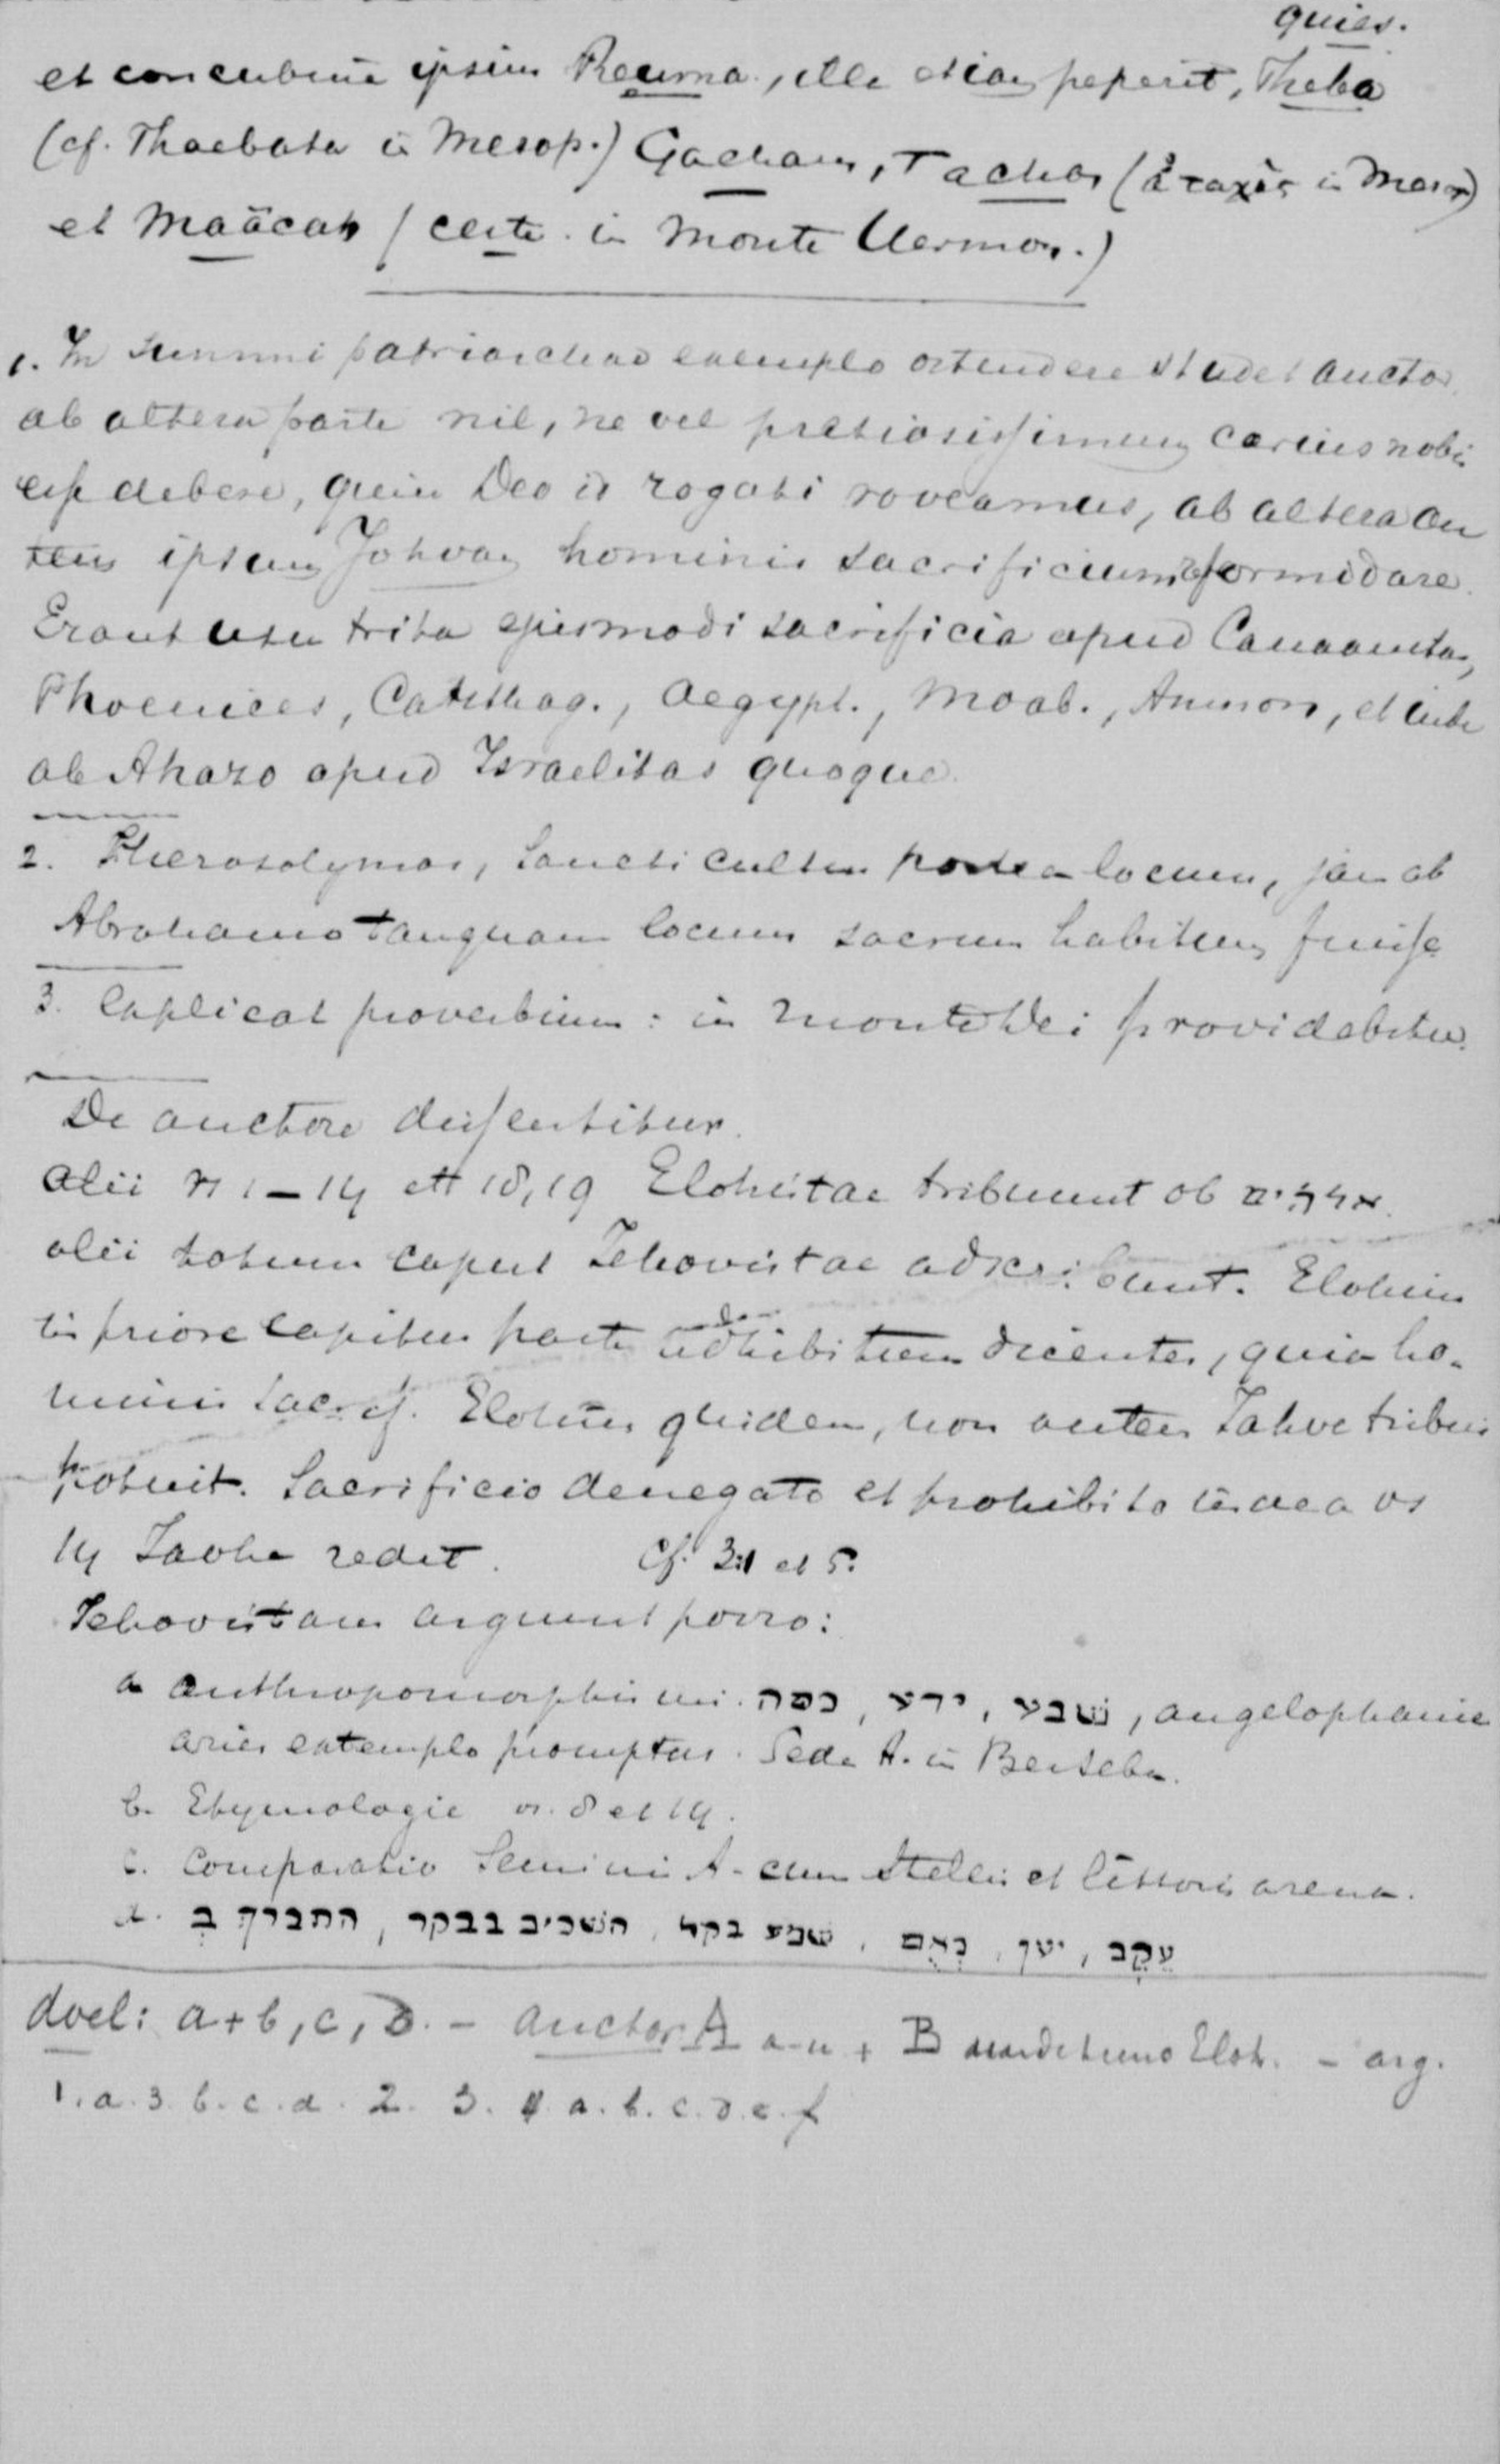 quies.
et concubina ipsius Reuma, illa etiam peperit, Theba
(cf. Thaebata in Mesop.) Gacham, Tachas (ἀταχὰς in Mesop)
et Maäcah (certe in monte Hermon.)
1. In summi patriarchae exemplo ostendere studet auctor
ab altera parte nil, ne vel pretiosissimum carius nobis
esse debere, quin Deo id rogati voveamus, ab altera au
tem ipsum Johvam hominis sacrificium reformidare.
Erant usu trita ejusmodi sacrificia apud Canaanitas,
Phoenices, Carthag., Aegypt., Moab., Ammon, et inde
ab Ahazo apud Israelitas quoque.
2. Hierosolymas, sancti cultus postea locum, jam ab
Abrahamo tanquam locum sacrum habitum fuisse
3. Explicat proverbium: in monte Dei providebitur.
De auctore dissentitur.
alii vs 1–14 et 18, 19 Elohistae tribuunt ob אלהים.
alii totum caput Jehovistae adscribunt. Elohim
in priore capitis parte adhibitum dicentes, quia ho-
minis sacrif. Elohim quidem, non autem Jahve tribui
potuit. Sacrificio denegato et prohibito indea vs
14 Javhe redit. Cf. 3:1 et 5.
Jehovistam arguunt porro:
a anthropomorphismi. נסה, ידע, נשבע, angelophanie
aries extemplo promptus. Sede A. in Berseba.
b. Etymologie vs. 8 et 14.
c. Comparatio Seminis A. cum stellis et littoris arena.
d. התברך בְ, השכים בבקר, שמע בקל, נְאֻם, יען, עֵקֶב
doel: a+b, c, d. – auctor A a-u + B Eloh. – arg.
1. a. 3. b. c. d. 2. 3. 4 a. b. c. d. e. f